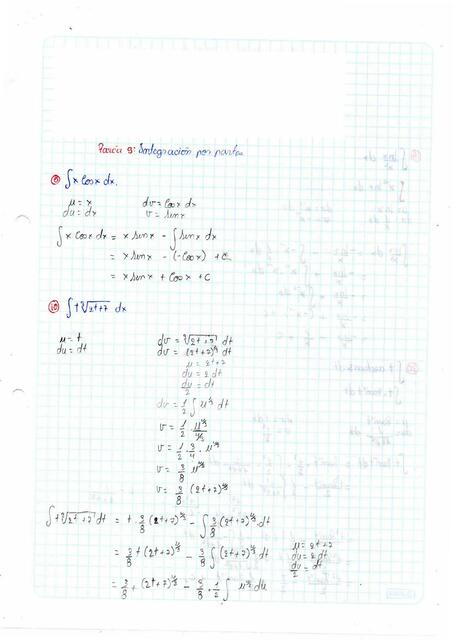 Tarea 9: Integración por partes
⑨ ∫ x cos x dx.
u = x    dv = cos x dx
du = dx    v = sin x
∫ x cos x dx = x sin x - ∫ sin x dx
= x sin x - (-cos x) + C
= x sin x + cos x + C
⑩ ∫ t ∛(2t+7) dx
u = t    dv = ∛(2t+7) dt
du = dt    dv = (2t+7)^(1/3) dt
u = 2t+7
du = 2 dt
du/2 = dt
dv = 1/2 ∫ u^(1/3) dt
v = 1/2 · u^(4/3)/(4/3)
v = 1/2 · 3/4 · u^(4/3)
v = 3/8 u^(4/3)
v = 3/8 (2t+7)^(4/3)
∫ t ∛(2t+7) dt = t · 3/8 (2t+7)^(4/3) - ∫ 3/8 (2t+7)^(4/3) dt
= 3/8 t (2t+7)^(4/3) - 3/8 ∫ (2t+7)^(4/3) dt    u = 2t+7
du = 2 dt
du/2 = dt
= 3/8 t (2t+7)^(4/3) - 3/8 · 1/2 ∫ u^(4/3) du